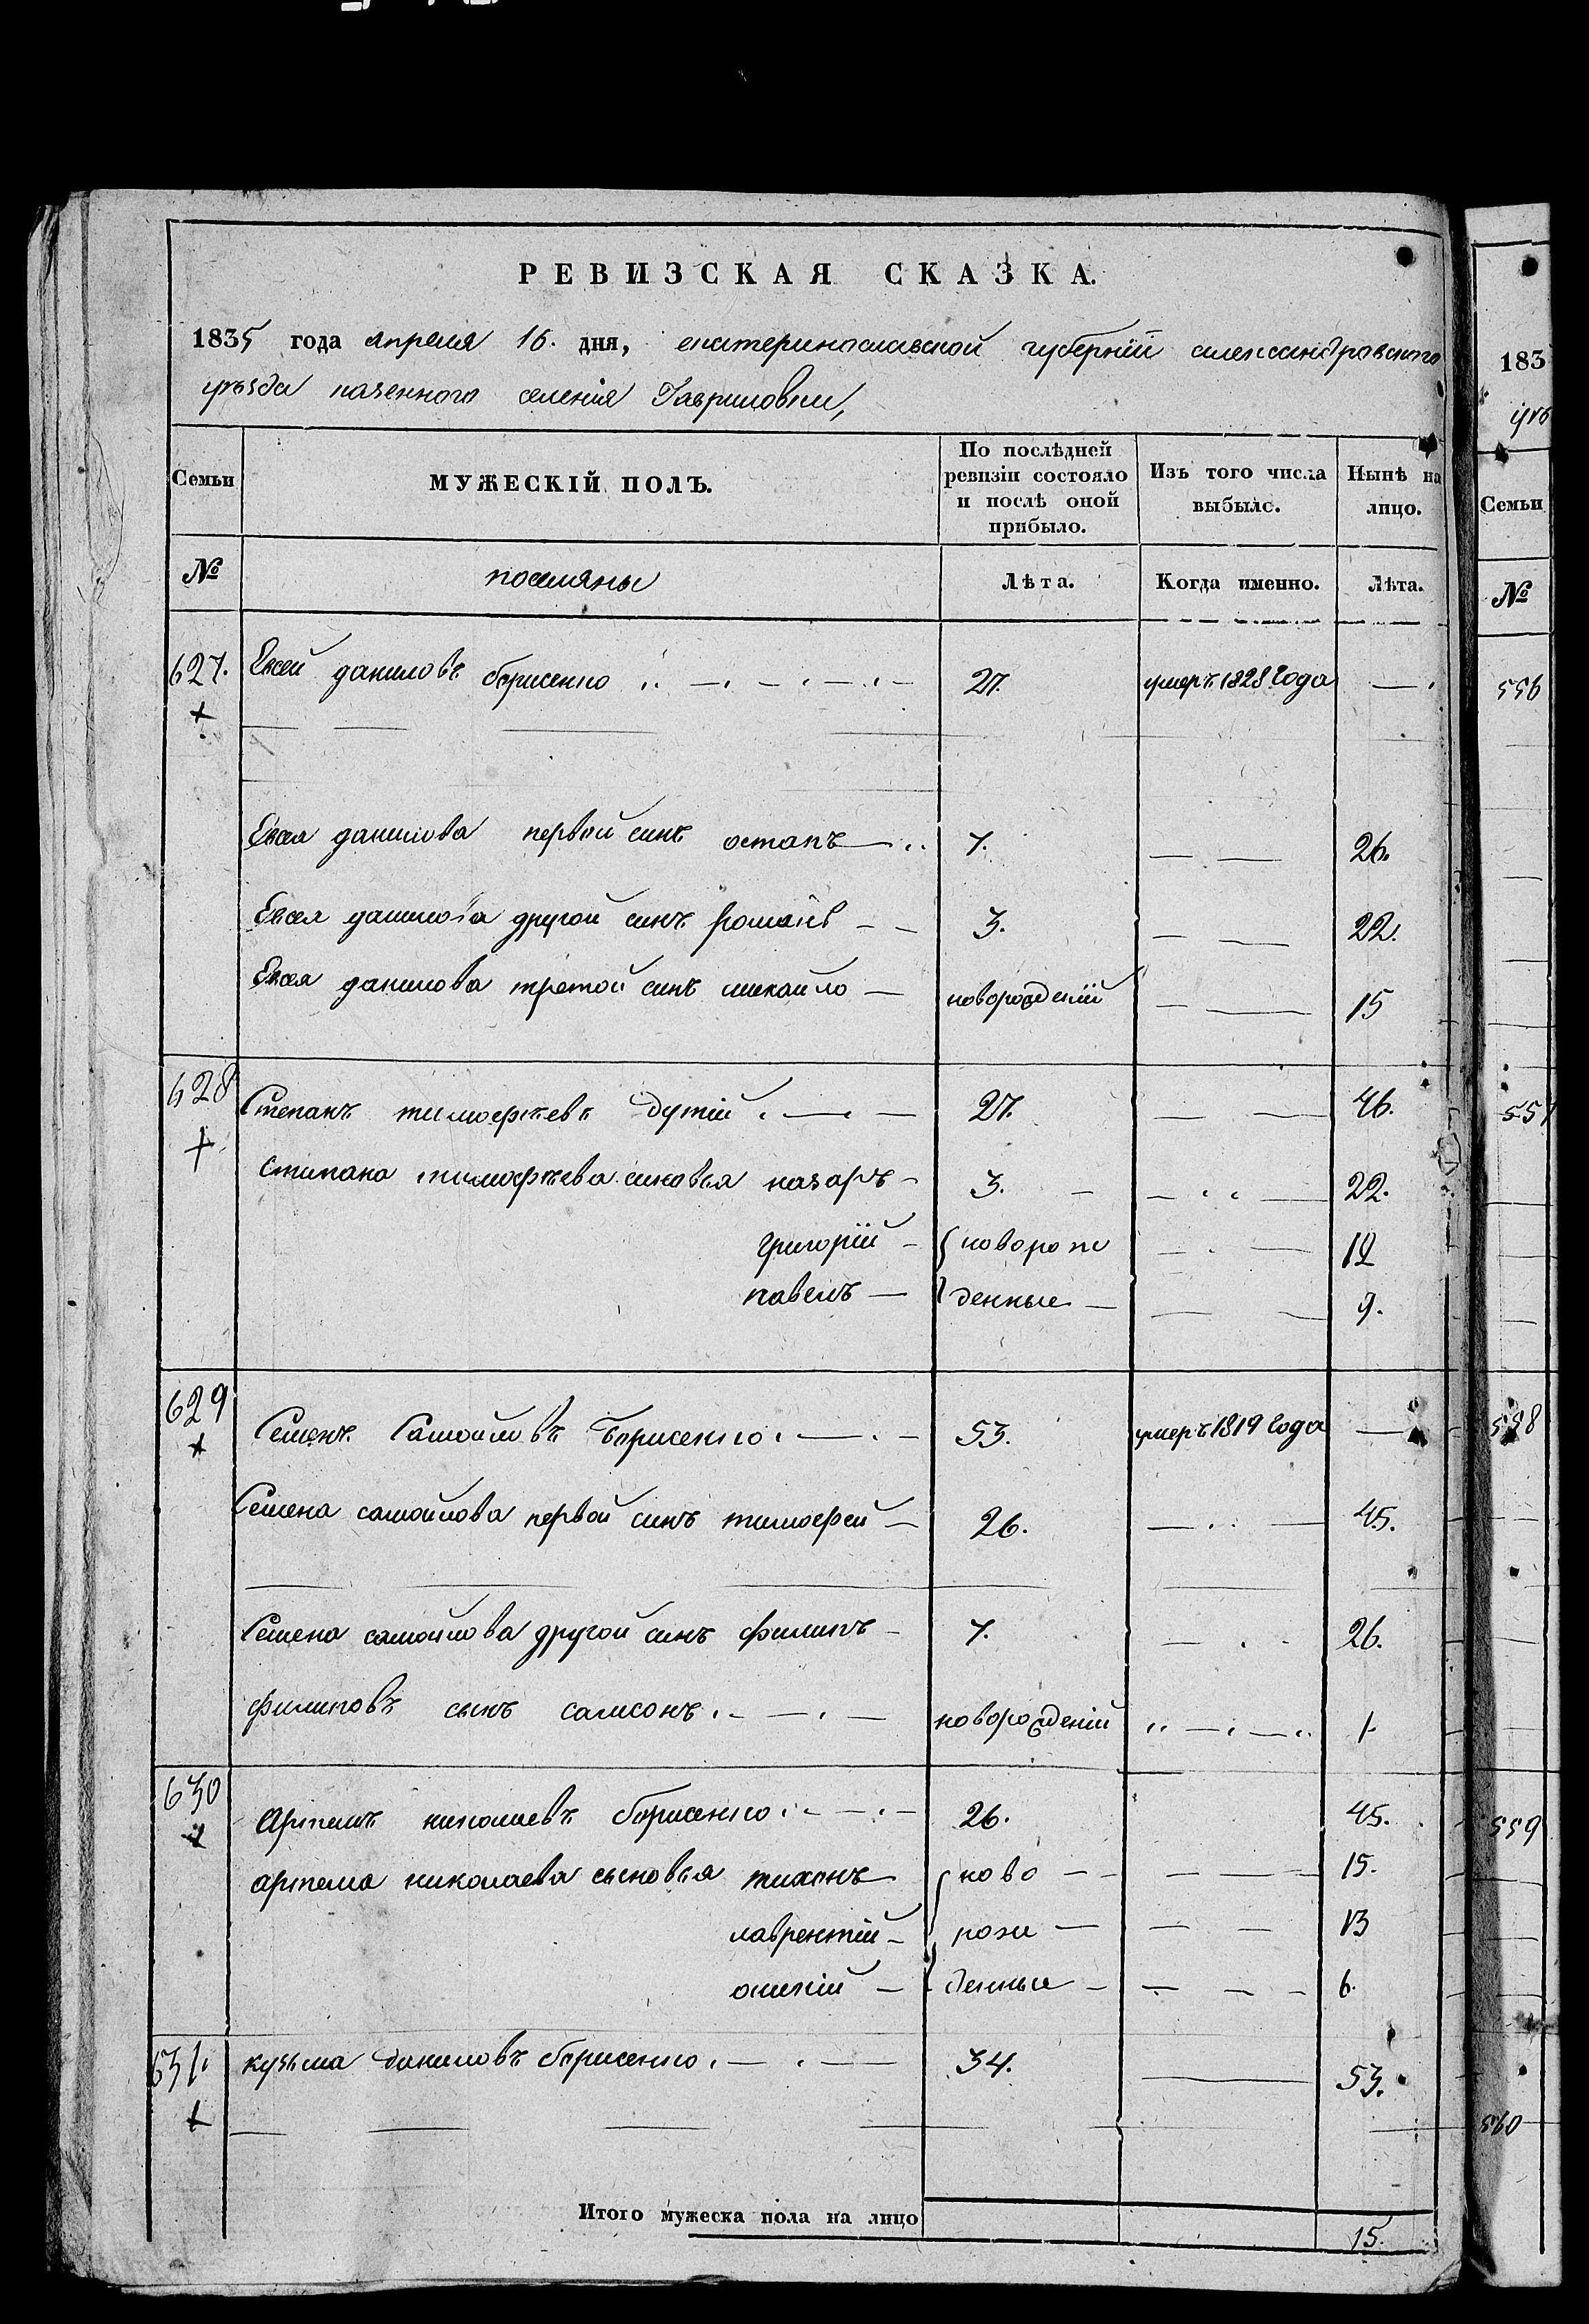 РЕВИЗСКАЯ СКАЗКА.
1835 года апреля 16. дня, екатеринославской губерніи александровского
уѣзда казенного селенія Гавриловки,
Семьи МУЖЕСКІЙ ПОЛЪ. По послѣдней ревизіи состояло и послѣ оной прибыло. Изъ того числа выбыло. Нынѣ на лицо.
№ поселяны Лѣта. Когда именно. Лѣта.
627. Евсей даниловъ борисенко 27. умеръ 1828 Года —
Евсея данилова первой синъ остапъ 7. 26.
Евсея данилова другой синъ романъ 3. 22.
Евсея данилова третой синъ михайло новорожденій 15
628 Степанъ тимофѣевъ дутій 27. 46.
Стипана тимофѣева синовья назаръ 3. 22.
григорій новорож 12
павелъ денные 9.
629 Семенъ Самойловъ борисенко 53. умеръ 1819 Года —
Семена самойлова первой синъ тимофей 26. 45.
Семена самойлова другой синъ филипъ 7. 26.
филиповъ сынъ самсонъ новорожденій 1.
630 Артемъ николаевъ борисенко 26. 45.
артема николаева сыновья тихонъ ново 15.
лаврентій рож 13
денные 6.
631. кузьма даниловъ борисенко 34. 53.
Итого мужеска пола на лицо 15.
183
уѣ
Семьи
№
556
557
558
559
560